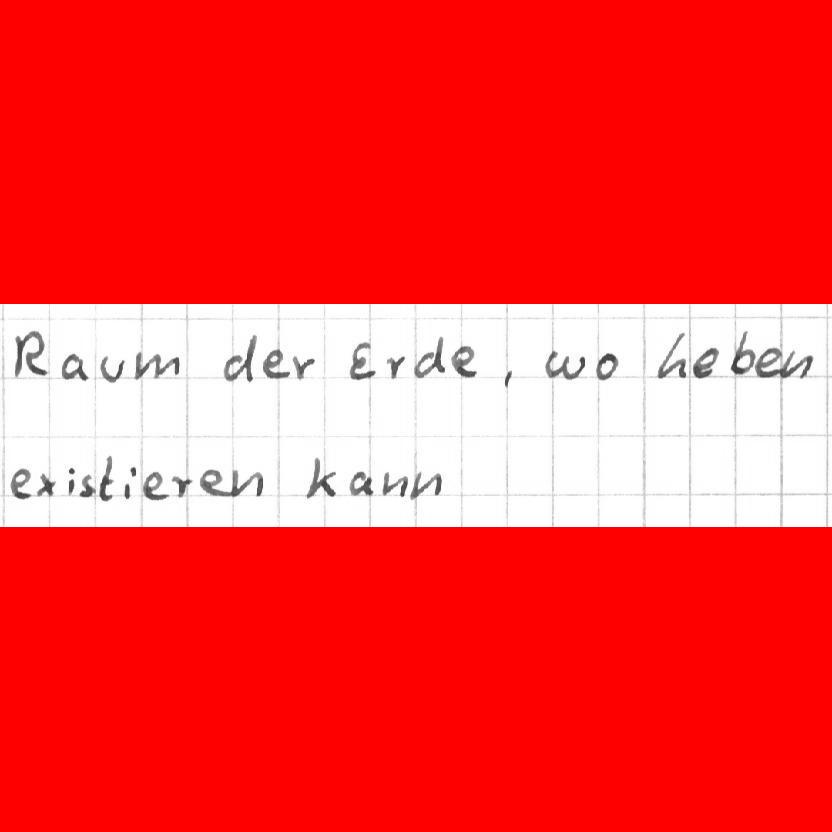 Raum der Erde, wo heben
existieren kann